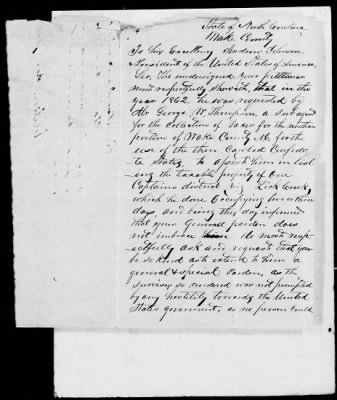 State of North Carolina
Wake County
To His Excellency Andrew Johnson
President of the United States of America
Sir. The undersigned your petitioner
most respectfully sheweth, that in the
year 1862 he was requested by
Mr George W. Thompson, a sub agent
for the Collection of Taxes for the northern
portion of Wake County NC for the
use of the then Caoled Confede
te States, to assist him in list
ing the taxable property of One
Captains district viz Lick Creek,
which he done Occupying two or three
days, and being this day informed
that your General pardon does
not imbrace him do most resp
ectfully ask and request that you
be so kind as to extend to him a
general & special Pardon, as the
survises so rendered was not prompted
by any hostility towards the United
States government, as no person could